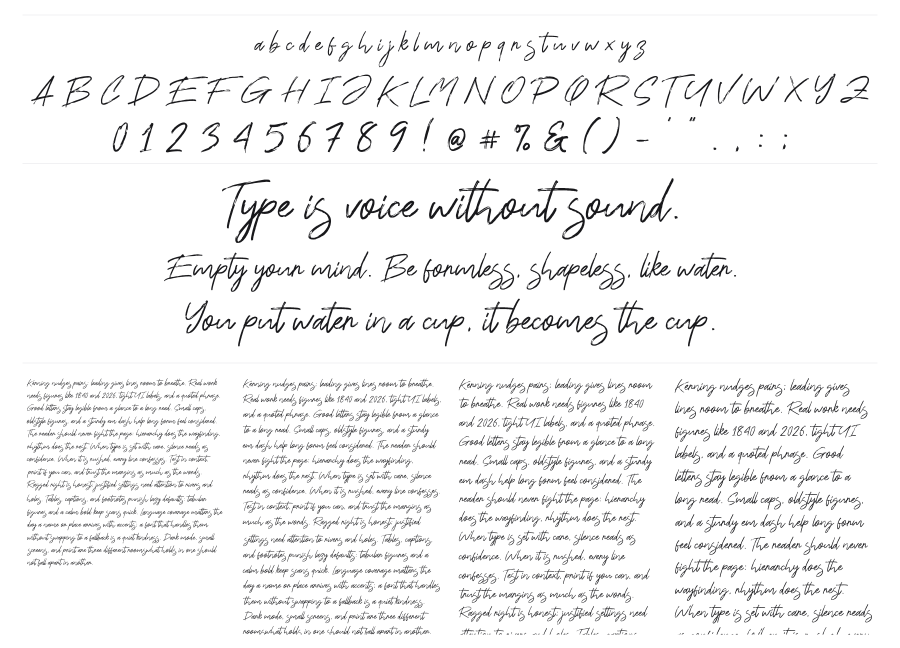 a b c d e f g h i j k l m n o p q r s t u v w x y z
A B C D E F G H I J K L M N O P Q R S T U V W X Y Z
0 1 2 3 4 5 6 7 8 9 ! @ # % & ( ) - ' " . , : ;
Type is voice without sound.
Empty your mind. Be formless, shapeless, like water.
You put water in a cup, it becomes the cup.
Kerning nudges pairs; leading gives lines room to breathe. Real work
needs figures like 1840 and 2026, tight UI labels, and a quoted phrase.
Good letters stay legible from a glance to a long need. Small caps,
oldstyle figures, and a sturdy em dash help long form feel considered.
The reader should never fight the page: hierarchy does the wayfinding,
rhythm does the rest. When type is set with care, silence reads as
confidence. When it is rushed, every line confesses. Test in context,
print if you can, and trust the margins as much as the words.
Ragged right is honest; justified settings need attention to rivers and
holes. Tables, captions, and footnotes punish lazy defaults; tabular
figures and a calm bold keep scans quick. Language coverage matters the
day a name or place arrives with accents; a font that handles them
without swapping to a fallback is a quiet kindness. Dark mode, small
screens, and print are three different rooms; what holds in one should
not fall apart in another.
Kerning nudges pairs; leading gives lines room to breathe.
Real work needs figures like 1840 and 2026, tight UI labels,
and a quoted phrase. Good letters stay legible from a glance
to a long need. Small caps, oldstyle figures, and a sturdy
em dash help long form feel considered. The reader should
never fight the page: hierarchy does the wayfinding,
rhythm does the rest. When type is set with care, silence
reads as confidence. When it is rushed, every line confesses.
Test in context, print if you can, and trust the margins as
much as the words. Ragged right is honest; justified
settings need attention to rivers and holes. Tables, captions,
and footnotes punish lazy defaults; tabular figures and a
calm bold keep scans quick. Language coverage matters the
day a name or place arrives with accents; a font that handles
them without swapping to a fallback is a quiet kindness.
Dark mode, small screens, and print are three different
rooms; what holds in one should not fall apart in another.
Kerning nudges pairs; leading gives lines room
to breathe. Real work needs figures like 1840
and 2026, tight UI labels, and a quoted phrase.
Good letters stay legible from a glance to a long
need. Small caps, oldstyle figures, and a sturdy
em dash help long form feel considered. The
reader should never fight the page: hierarchy
does the wayfinding, rhythm does the rest.
When type is set with care, silence reads as
confidence. When it is rushed, every line
confesses. Test in context, print if you can, and
trust the margins as much as the words.
Ragged right is honest; justified settings need
attention to rivers and holes. Tables, captions,
Kerning nudges pairs; leading gives
lines room to breathe. Real work needs
figures like 1840 and 2026, tight UI
labels, and a quoted phrase. Good
letters stay legible from a glance to a
long need. Small caps, oldstyle figures,
and a sturdy em dash help long form
feel considered. The reader should never
fight the page: hierarchy does the
wayfinding, rhythm does the rest.
When type is set with care, silence reads